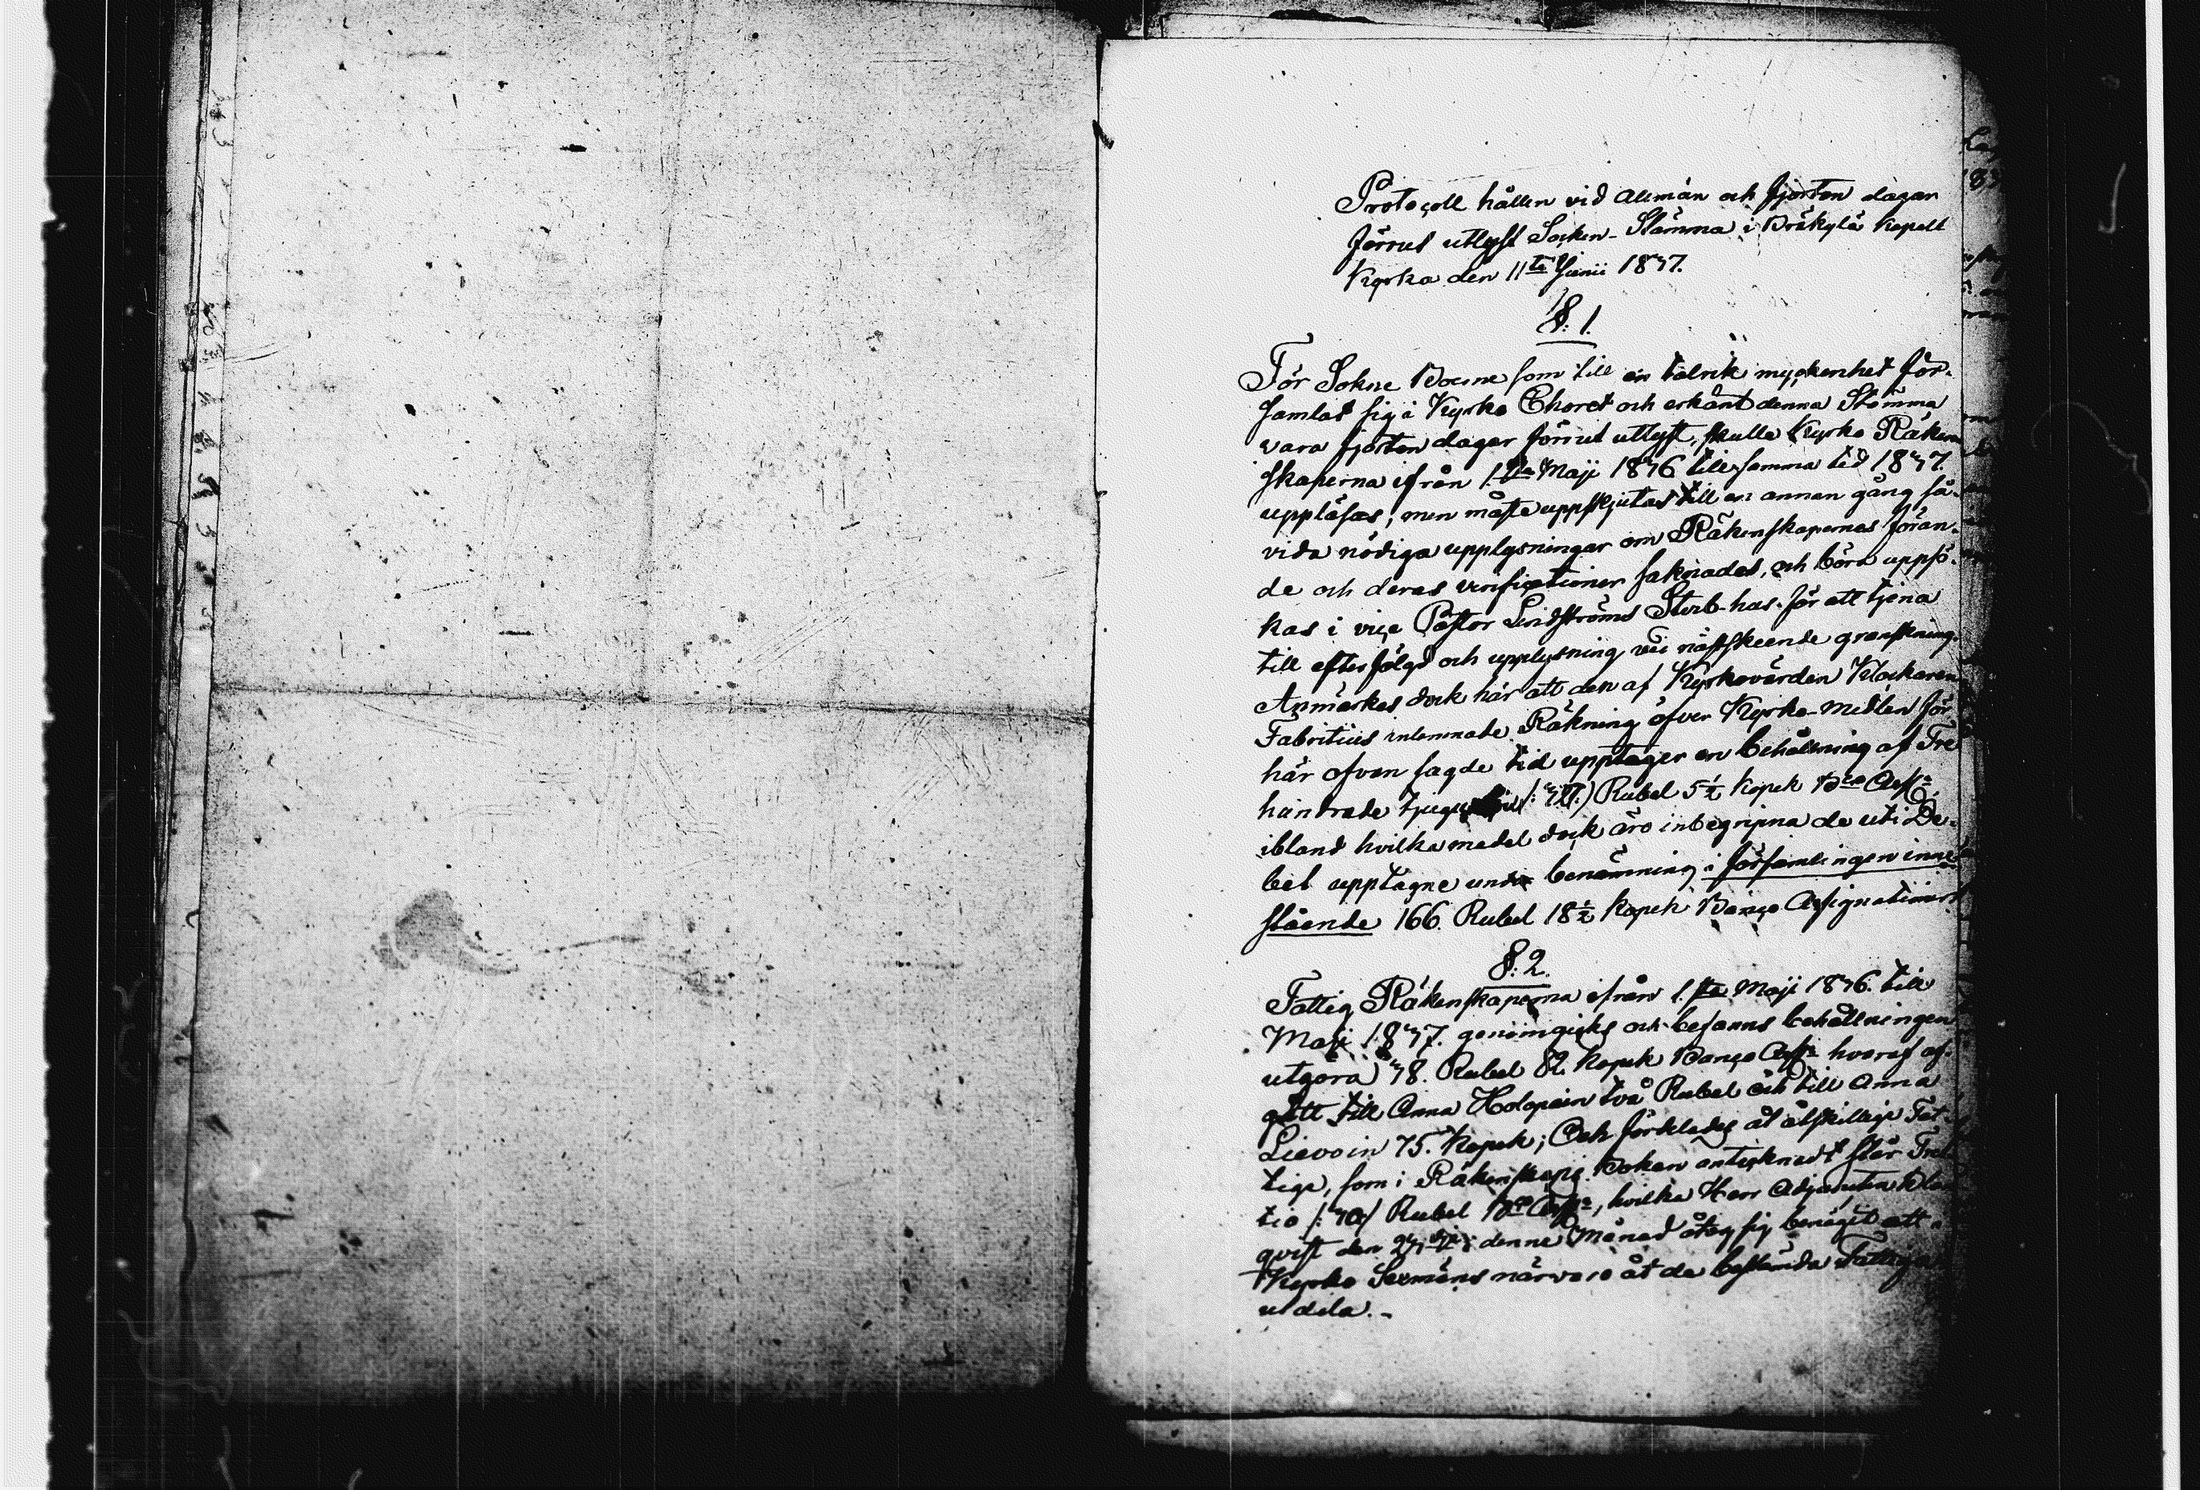 Protocoll hållen vid allmän och fjorton dagar
förrut utlyst Socken-Stämma i Bräkylä Kapell
Kyrka den 11te Junii 1837.
§. 1.
För Sokne Boerne som till en talrik myckenhet för-
samlat sig i Kyrko Choret och erkänt denna Stämma
vara fjorton dagar förrut utlyst, skulle Kyrko Räken
skaperna ifrån 1.sta Maji 1836 till samma tid 1837.
uppläsas; men måste uppskjutas till en annan gång så-
vida nödiga upplysningar om Räkenskapernas föran-
de och deras verificationer saknades, och böra uppsö-
kas i vice Pastor Lindströms Sterb-hus för att tjena
till efterföljd och upplysning vid nästskeende granskning.
Anmärkes dock här att den af Kyrkovärden Klockaren
Fabritius inlemnade Räkning öfver Kyrko-medlen för
här ofvan sagde tid upptager en behållning af Tre
hundrade tjugu Rubel 5½ Kopek Bco Assr
ibland hvilka medel dock äro inbegripna de uti De-
bet upptagne under benämning i församlingen inne
stående 166. Rubel 18½ Kopek Banco Assignationer
§. 2.
Fattig Räkenskaperna ifrån 1.sta Maji 1836. till
Maji 1837. genomgicks och befanns behållningen
utgöra 38. Rubel 82. Kopek Banco Assr hvaraf af-
gått till Anna Holopain två Rubel och till Anna
Lievoin 75. Kopek; Och förklades åt åtskillige Fat-
tige, som i Räkenskaps Boken antecknadt står Tret-
tio /: 30 / Rubel Bco Assr, hvilka Herr Adjuncten
qvist den denne Månad åtog sig benäget att i
Kyrko Sexmäns närvaro åt de bestämda Fattiga
utdela. -